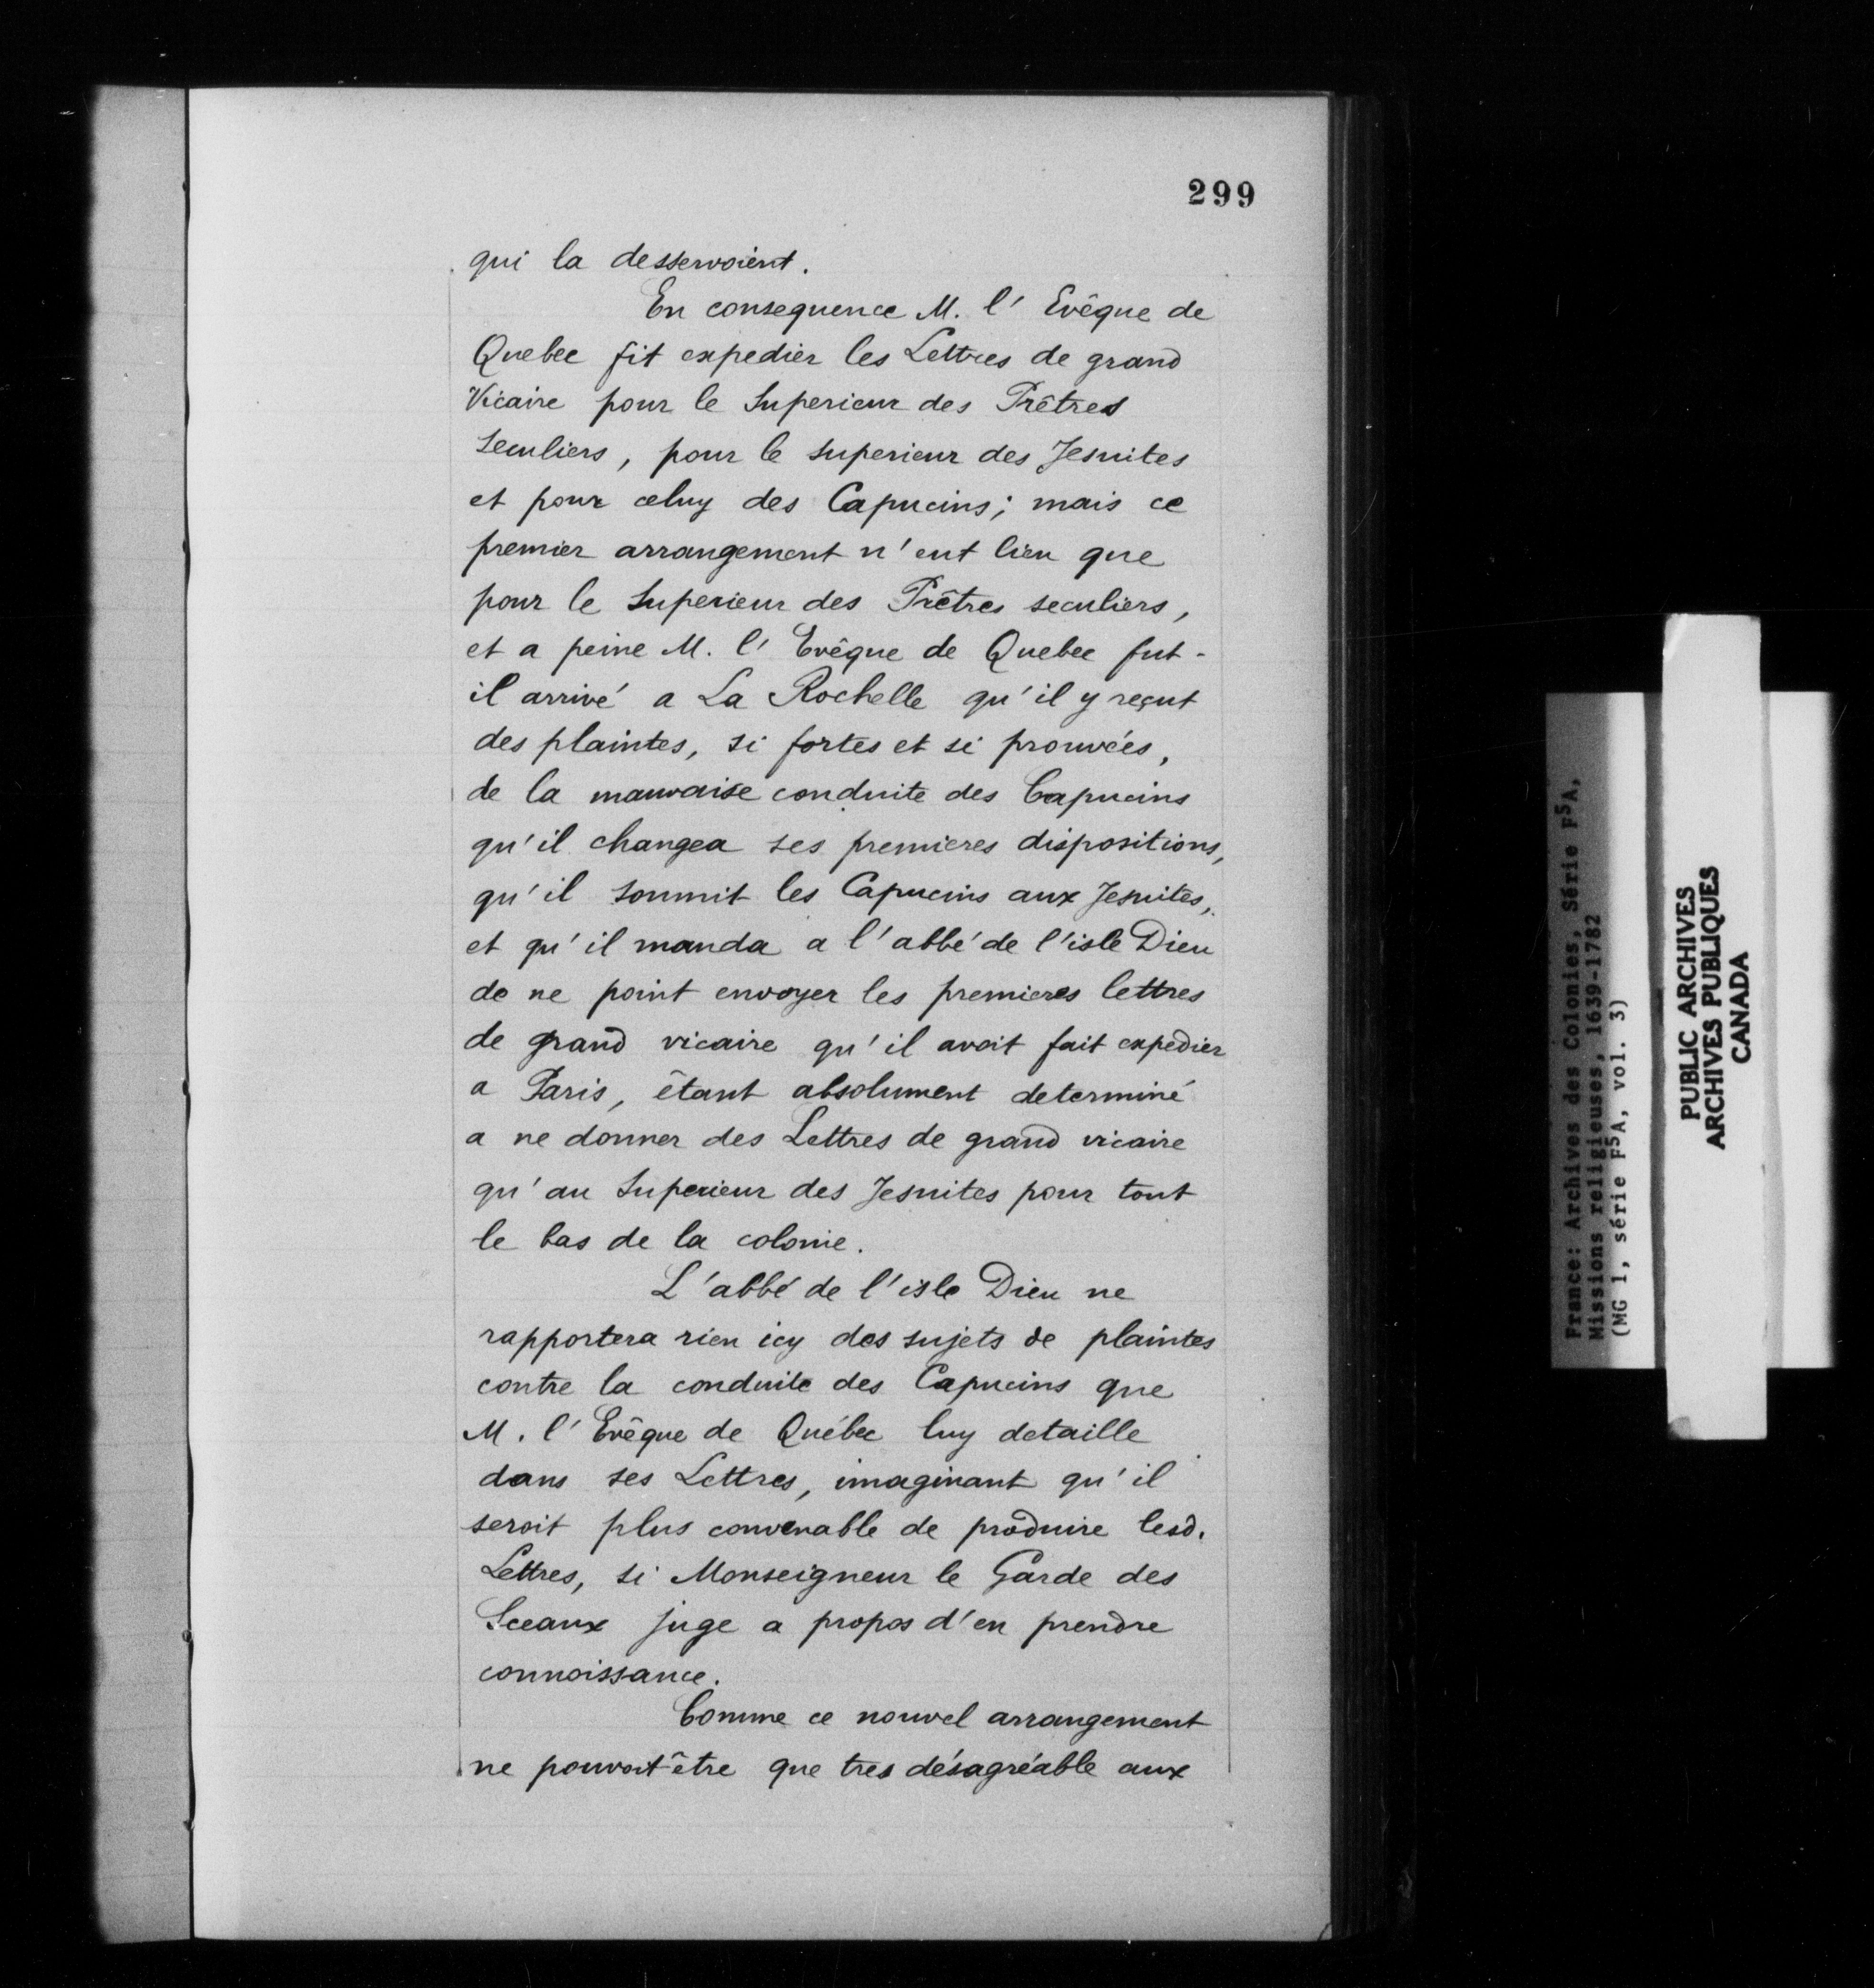 299
qui la desservoient.
En consequence M. l' Evêque de
Quebec fit expedier les Lettres de grand
Vicaire pour le Superieur des Prêtres
Seculiers, pour le superieur des Jesuites
et pour celuy des Capucins; mais ce
premier arrangement n'eut lieu que
pour le Superieur des Prêtres seculiers,
et a peine M. l' Evêque de Quebec fut-
il arrivé a La Rochelle qu'il y reçut
des plaintes, si fortes et si prouvées,
de la mauvaise conduite des Capucins
qu'il changea ses premieres dispositions,
qu'il soumit les Capucins aux Jesuites,
et qu'il manda a l'abbé de l'isle Dieu
de ne point envoyer les premieres lettres
de grand vicaire qu'il avoit fait expedier
a Paris, êtant absolument determiné
a ne donner des Lettres de grand vicaire
qu'au Superieur des Jesuites pour tout
le bas de la colonie.
L'abbé de l'isle Dieu ne
rapportera rien icy des sujets de plaintes
contre la conduite des Capucins que
M. l' Evêque de Québec luy detaille
dans ses Lettres, imaginant qu'il
seroit plus convenable de produire lesd.
Lettres, si Monseigneur le Garde des
Sceaux juge a propos d'en prendre
connoissance.
Comme ce nouvel arrangement
ne pouvoit être que tres désagréable aux
France: Archives des Colonies, Série F5A,
Missions religieuses, 1639-1782
(MG 1, série F5A, vol. 3)
PUBLIC ARCHIVES
ARCHIVES PUBLIQUES
CANADA